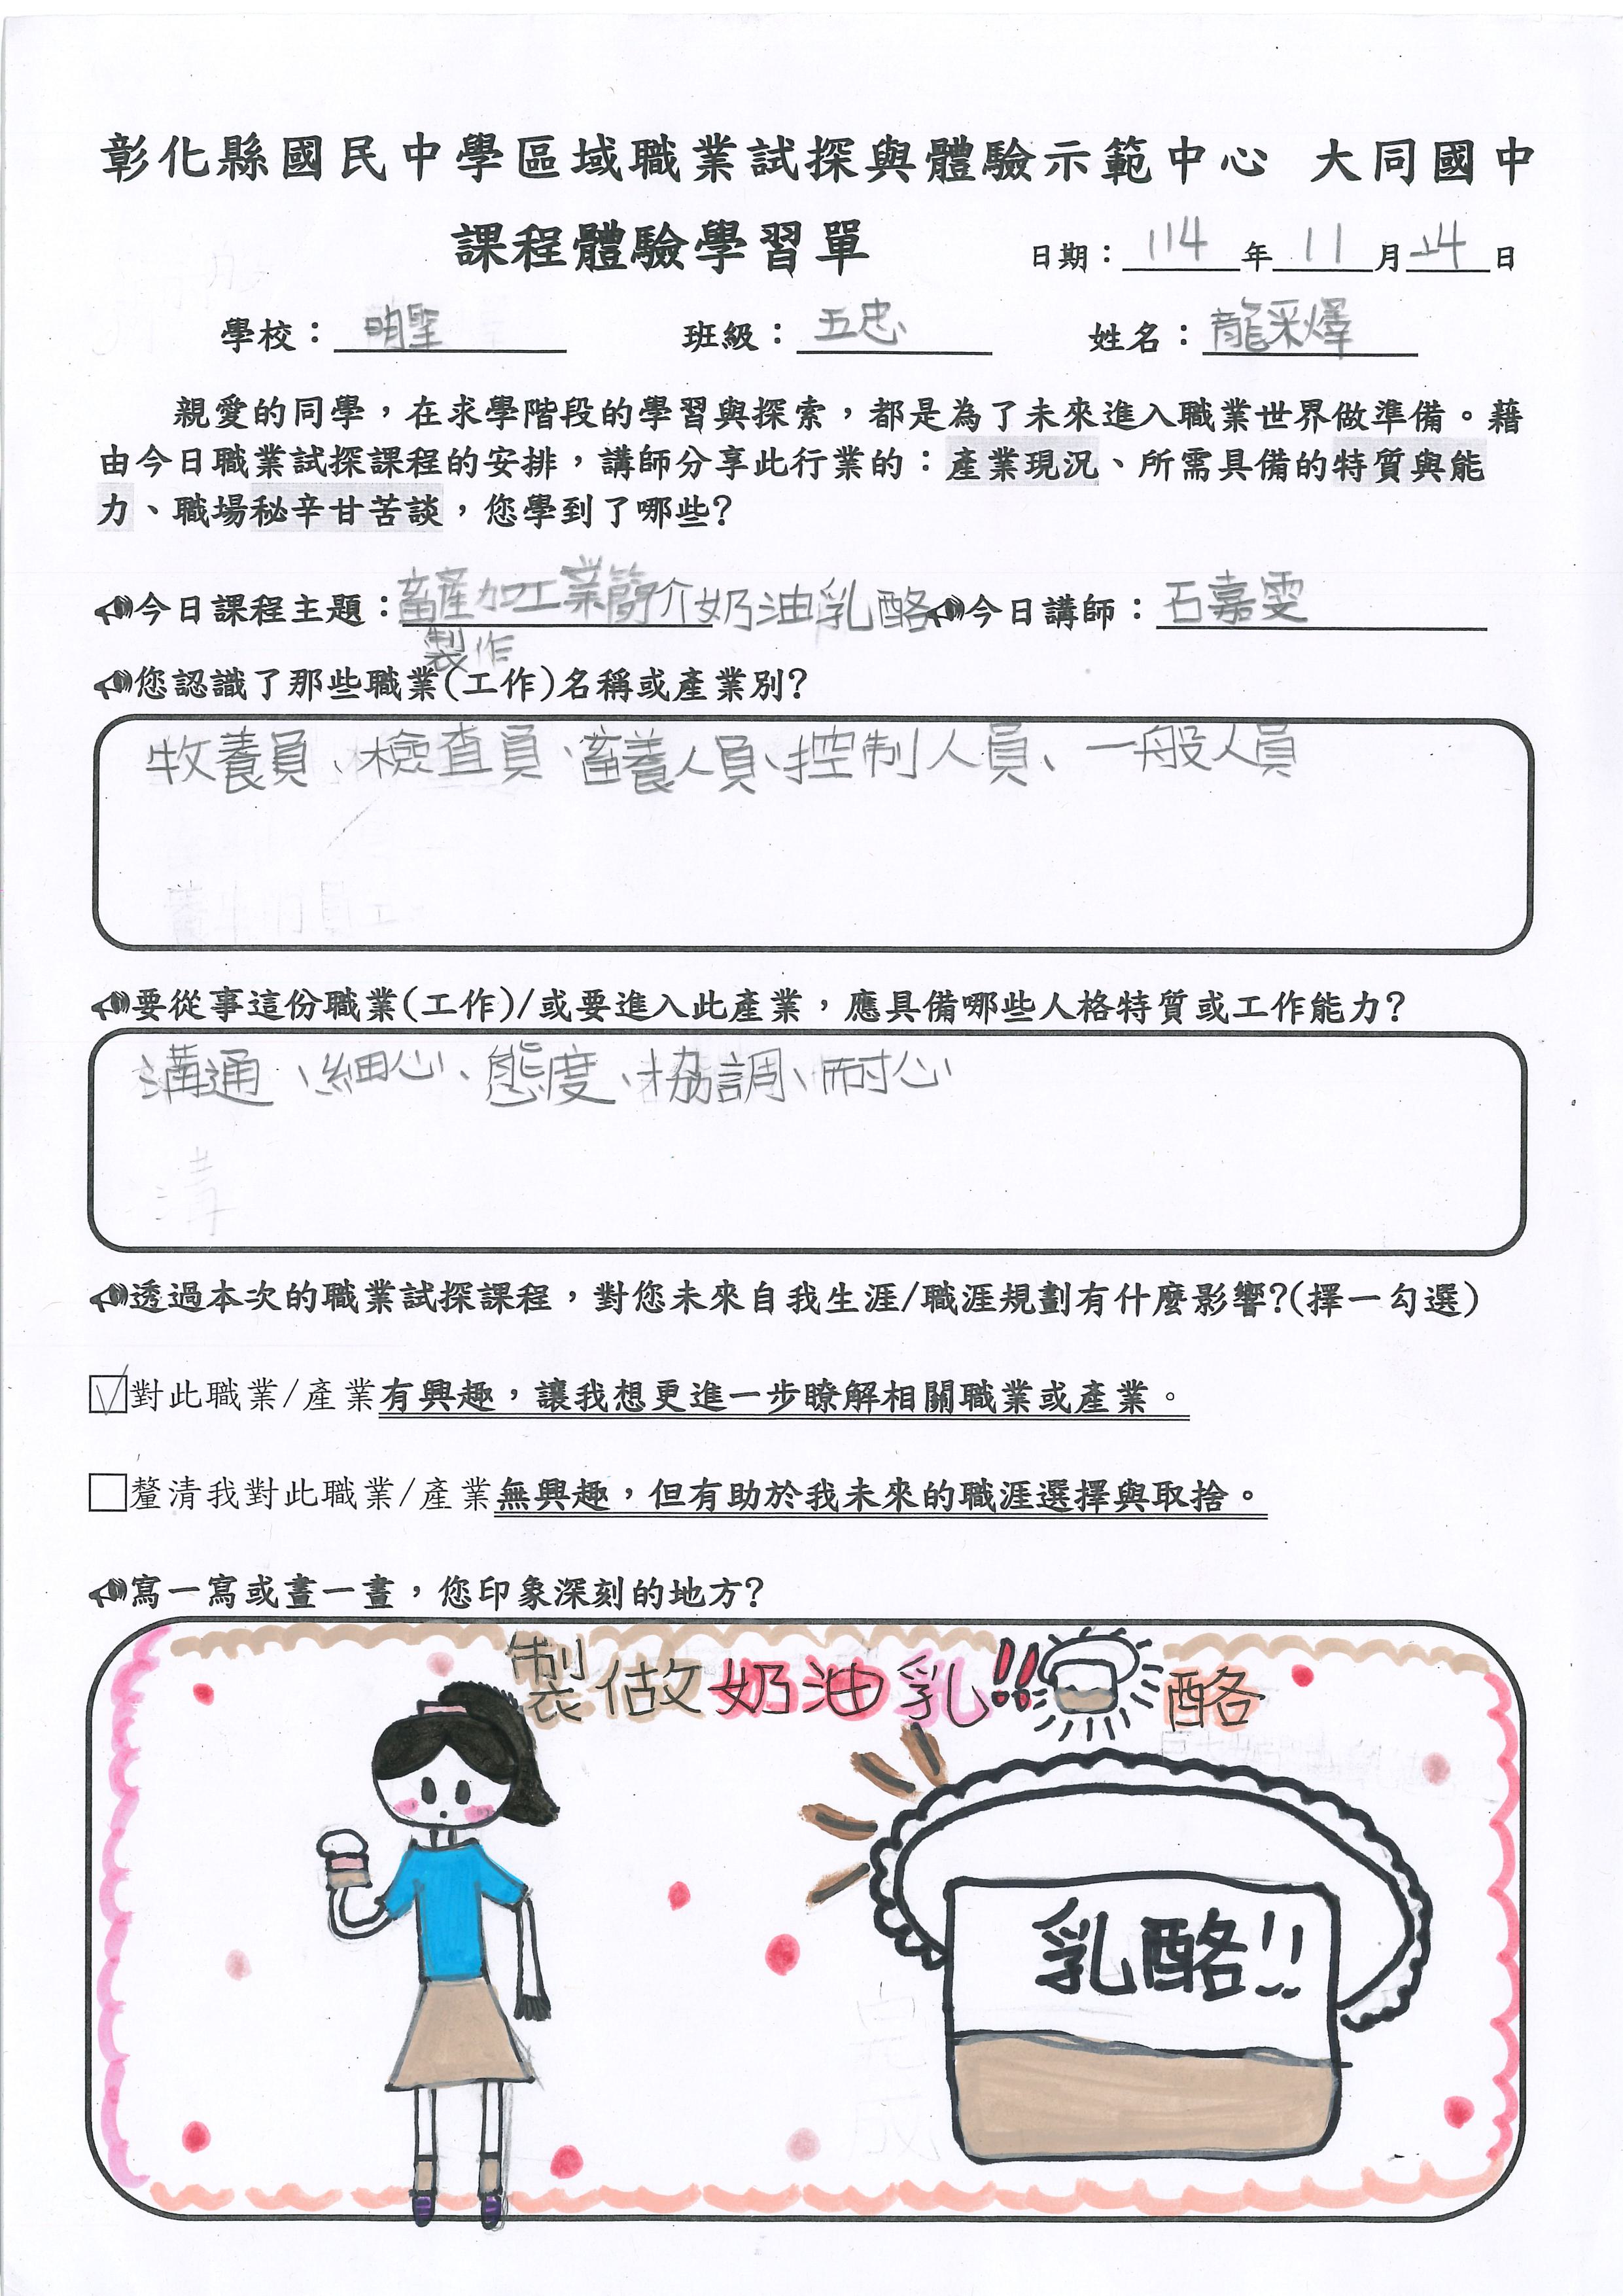 彰化縣國民中學區域職業試探與體驗示範中心 大同國中
課程體驗學習單 日期：114年11月24日
學校：明聖 班級：五忠 姓名：龍采燡
親愛的同學，在求學階段的學習與探索，都是為了未來進入職業世界做準備。藉
由今日職業試探課程的安排，講師分享此行業的：產業現況、所需具備的特質與能
力、職場秘辛甘苦談，您學到了哪些?
今日課程主題：畜產加工業簡介奶油乳酪 今日講師：石嘉雯
製作
您認識了那些職業(工作)名稱或產業別?
牧養員、檢查員、畜養人員、控制人員、一般人員
要從事這份職業(工作)/或要進入此產業，應具備哪些人格特質或工作能力?
溝通、細心、態度、協調、耐心
透過本次的職業試探課程，對您未來自我生涯/職涯規劃有什麼影響?(擇一勾選)
對此職業/產業有興趣，讓我想更進一步瞭解相關職業或產業。
釐清我對此職業/產業無興趣，但有助於我未來的職涯選擇與取捨。
寫一寫或畫一畫，您印象深刻的地方?
製做奶油乳!!酪
乳酪!!